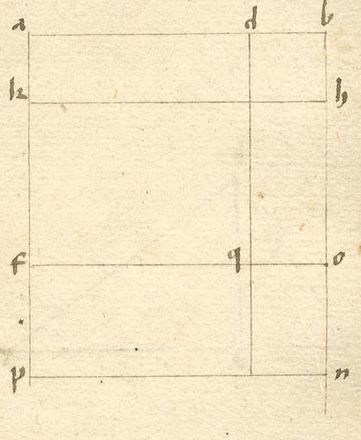 a d b
k h
f q o
p n